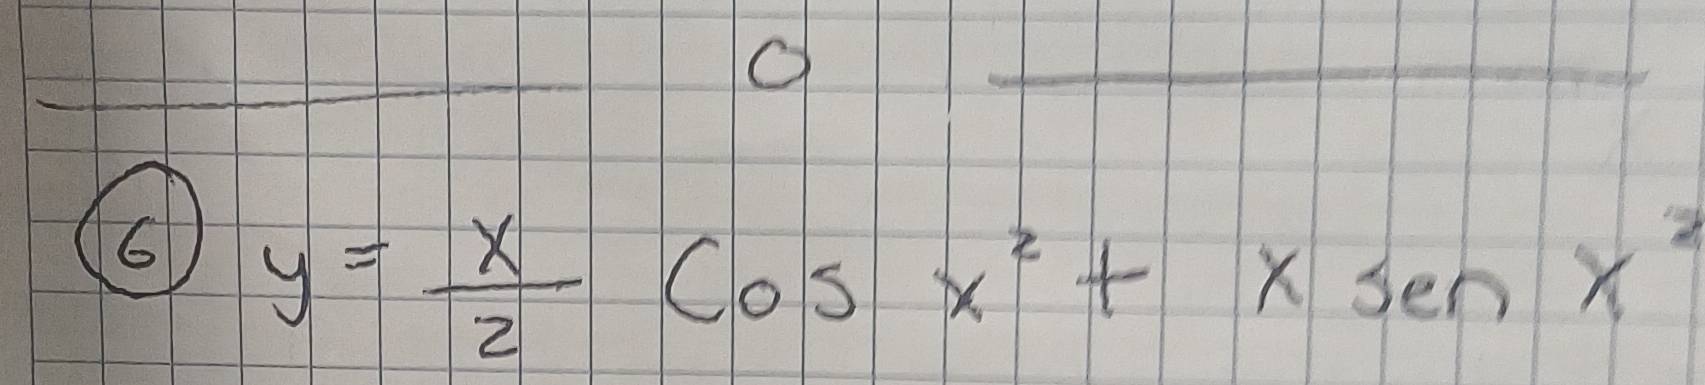 0
6 y = x/2 Cos x² + x sen x²